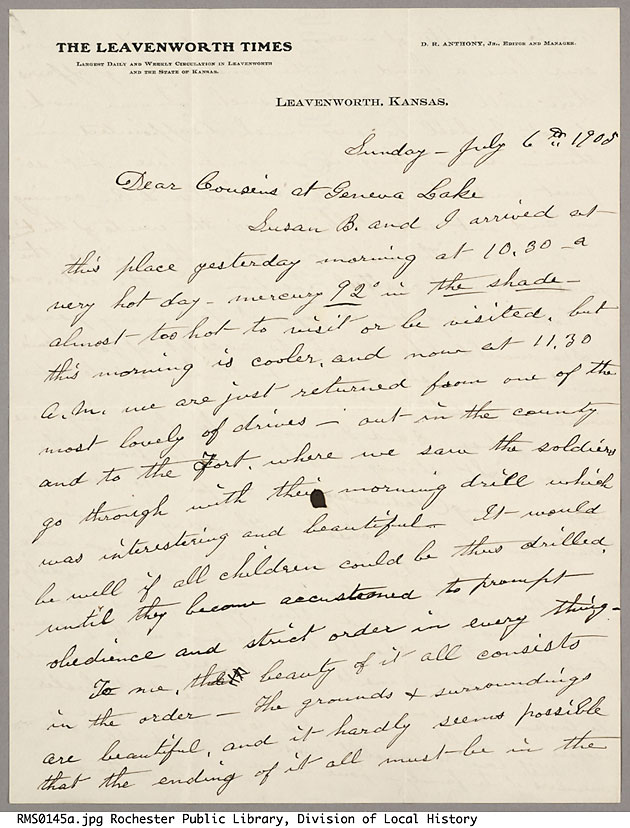 THE LEAVENWORTH TIMES
LARGEST DAILY AND WEEKLY CIRCULATION IN LEAVENWORTH
AND THE STATE OF KANSAS.
D. R. ANTHONY, JR., EDITOR AND MANAGER.
LEAVENWORTH, KANSAS.
Sunday – July 6th 1905
Dear Cousins at Geneva Lake
Susan B. and I arrived at
this place yesterday morning at 10.30 – a
very hot day – mercury 92° in the shade –
almost too hot to visit or be visited, but
this morning is cooler, and now at 11.30
a.m. we are just returned from one of the
most lovely of drives – out in the county
and to the Fort, where we saw the soldiers
go through with their morning drill which
was interestering and beautiful – It would
be well if all children could be thus drilled,
until they become accustomed to prompt
obedience and strict order in every thing –
To me, the beauty of it all consists
in the order – The grounds & surroundings
are beautiful, and it hardly seems possible
that the ending of it all must be in the
RMS0145a.jpg Rochester Public Library, Division of Local History